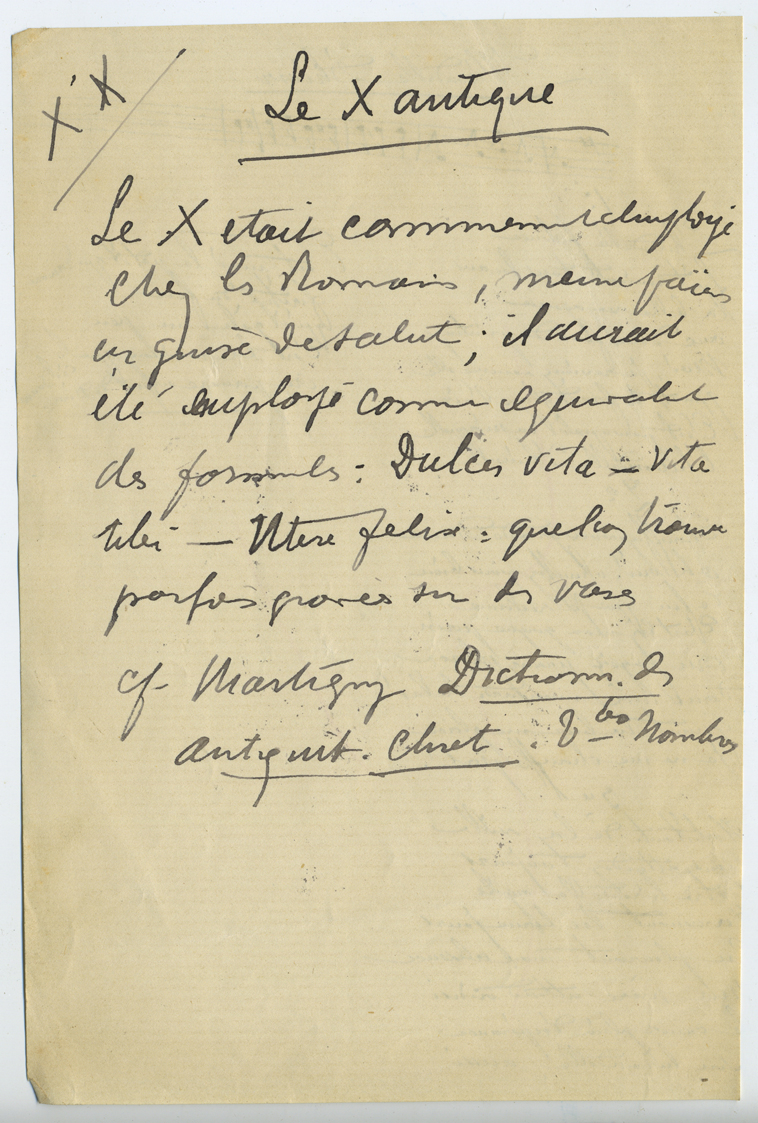 X X
Le X antique
Le X etait communement employé
chez les Romains, meme païens
en guise de salut ; il aurait
été employé comme equivalent
des formules : Dulcis vita — Vita
tibi — Utere felix : que l'on trouve
parfois gravées sur des vases
cf. Martigny Dictionn. des
antiquit. Chret. Vbo Nombres